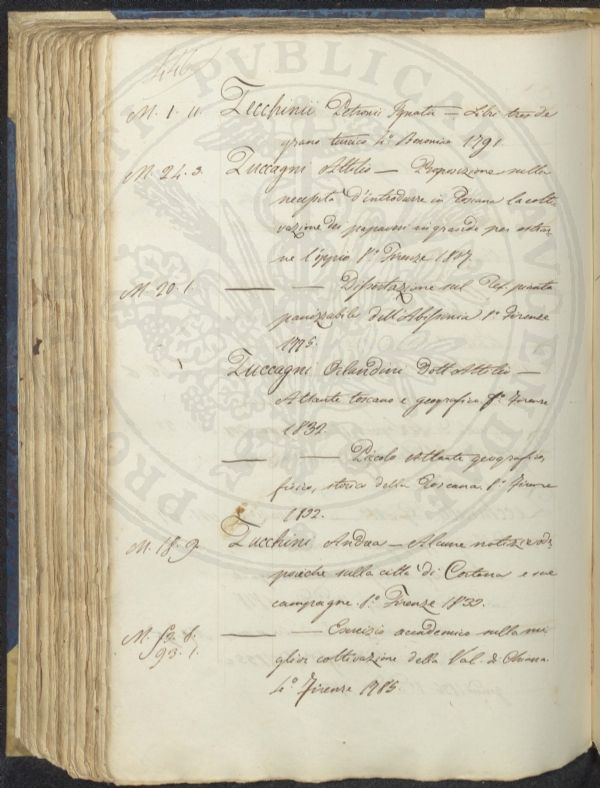 446
M. 1. 11. Zecchinii Petronii Ignatii — Libri tres de
grano turcico 4.° Bononiae 1791.
M. 24. 3. Zuccagni Attilio — Proposizione sulla
necessità d'introdurre in Toscana la colti-
vazione dei papaveri in grande per estrar-
ne l'oppio 8.° Firenze 1807.
M. 20. 1. — — Dissertazione sul Tef pianta
panizzabile dell'Abissinia 8.° Firenze
1775.
Zuccagni Orlandini Dott. Attilio —
Atlante toscano e geografico f.° Firenze
1832
— — Piccolo Atlante geografico,
fisico, storico della Toscana 8.° Firenze
1832.
M. 18. 9. Zucchini Andrea — Alcune notizie
sulla città di Cortona e sue
campagne. 8.° Firenze 1833.
M. 53. 6. — — Esercizio accademico sulla mi-
93. 1. glior coltivazione della Val di Chiana
4.° Firenze 1785.
PUBLICAE UTILITATI